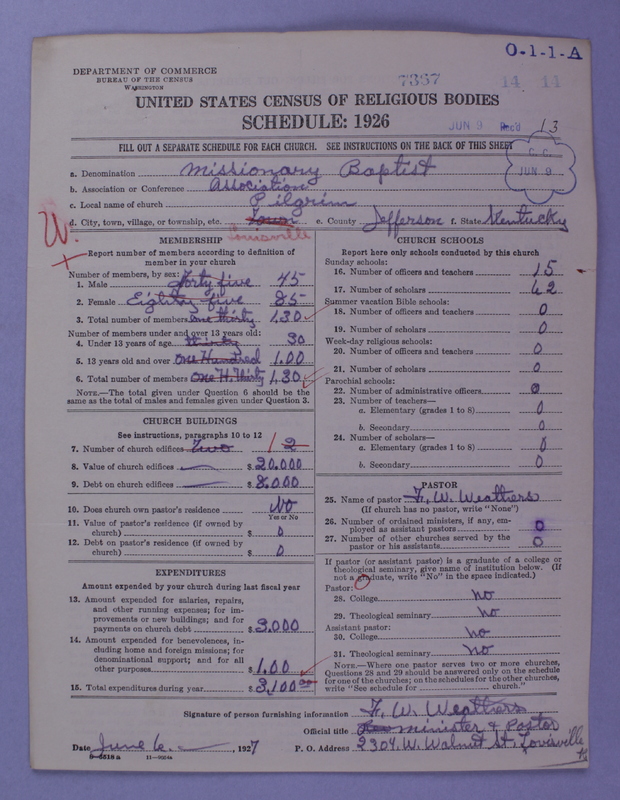 O-1-1-A
DEPARTMENT OF COMMERCE
BUREAU OF THE CENSUS
WASHINGTON
7367 14 14
UNITED STATES CENSUS OF RELIGIOUS BODIES
SCHEDULE: 1926
JUN 9 Rec'd 13
FILL OUT A SEPARATE SCHEDULE FOR EACH CHURCH. SEE INSTRUCTIONS ON THE BACK OF THIS SHEET
C. C.
JUN 9
a. Denomination Missionary Baptist
b. Association or Conference Association
c. Local name of church Pilgrim
d. City, town, village, or township, etc. Town e. County Jefferson f. State Kentucky
Louisville
W.
MEMBERSHIP
Report number of members according to definition of
member in your church
Number of members, by sex:
1. Male forty five 45
2. Female Eighty five 85
3. Total number of members one thirty 130
Number of members under and over 13 years old:
4. Under 13 years of age thirty 30
5. 13 years old and over one Hundred 1.00
6. Total number of members one H. Thirty 130
NOTE.—The total given under Question 6 should be the
same as the total of males and females given under Question 3.
CHURCH BUILDINGS
See instructions, paragraphs 10 to 12
7. Number of church edifices Two 1 2
8. Value of church edifices $20.000
9. Debt on church edifices $8.000
10. Does church own pastor's residence No
Yes or No
11. Value of pastor's residence (if owned by
church) $ 0
12. Debt on pastor's residence (if owned by
church) $ 0
EXPENDITURES
Amount expended by your church during last fiscal year
13. Amount expended for salaries, repairs,
and other running expenses; for im-
provements or new buildings; and for
payments on church debt $3.000
14. Amount expended for benevolences, in-
cluding home and foreign missions; for
denominational support; and for all
other purposes $1.00
15. Total expenditures during year $3,100 00
CHURCH SCHOOLS
Report here only schools conducted by this church
Sunday schools:
16. Number of officers and teachers 15
17. Number of scholars 62
Summer vacation Bible schools:
18. Number of officers and teachers 0
19. Number of scholars 0
Week-day religious schools:
20. Number of officers and teachers 0
21. Number of scholars 0
Parochial schools:
22. Number of administrative officers 0
23. Number of teachers—
a. Elementary (grades 1 to 8) 0
b. Secondary 0
24. Number of scholars—
a. Elementary (grades 1 to 8) 0
b. Secondary 0
PASTOR
25. Name of pastor F. W. Weathers
(If church has no pastor, write "None")
26. Number of ordained ministers, if any, em-
ployed as assistant pastors 0
27. Number of other churches served by the
pastor or his assistants 0
If pastor (or assistant pastor) is a graduate of a college or
theological seminary, give name of institution below. (If
not a graduate, write "No" in the space indicated.)
Pastor:
28. College no
29. Theological seminary no
Assistant pastor:
30. College no
31. Theological seminary no
NOTE.—Where one pastor serves two or more churches,
Questions 28 and 29 should be answered only on the schedule
for one of the churches; on the schedules for the other churches,
write "See schedule for church."
Signature of person furnishing information F. W. Weathers
Official title minister & Pastor
Date June 6. , 1927 P. O. Address 2304. W. Walnut St. Louisville Ky
11—9024a